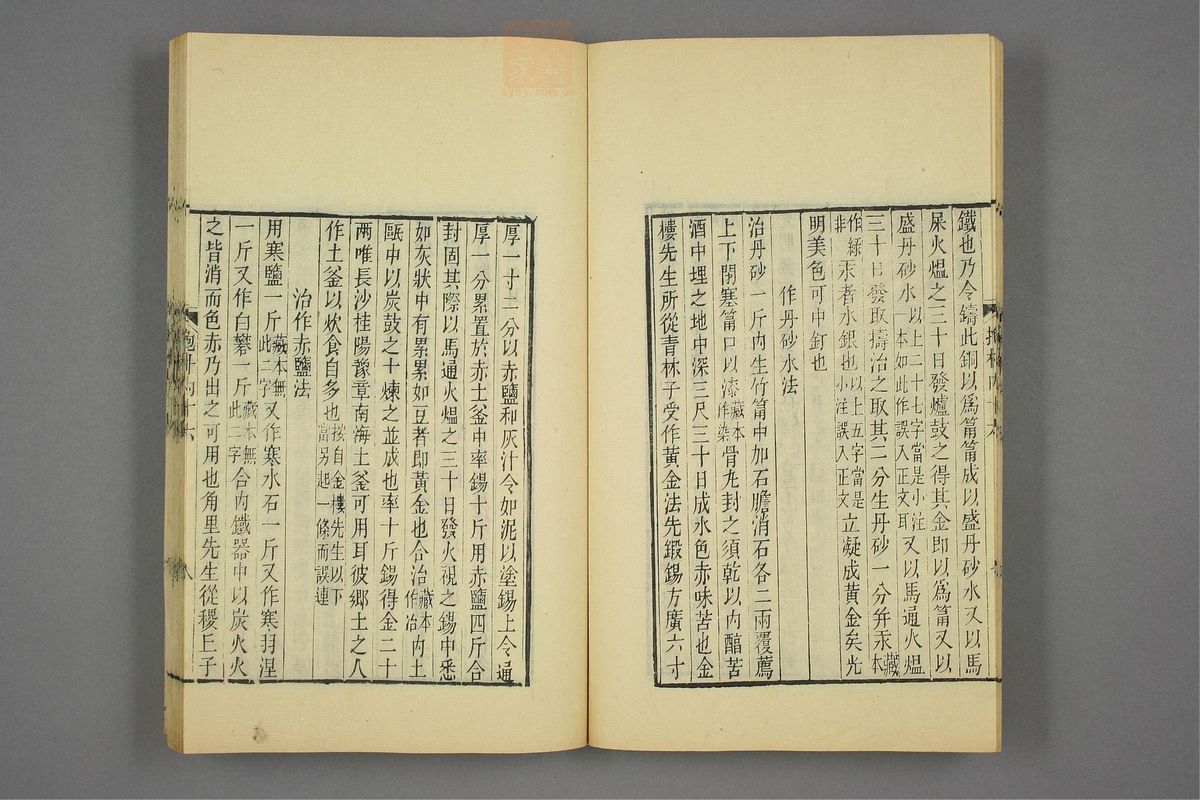 鐵也乃令鑄此銅以爲筩筩成以盛丹砂水又以馬
屎火熅之三十日發爐鼓之得其金即以爲筩又以
盛丹砂水以上二十七字當是小注一本如此作誤入正文耳又以馬通火熅
三十日發取擣治之取其二分生丹砂一分并汞藏本
作緑非汞者水銀也以上五字當是小注誤入正文立凝成黃金矣光
明美色可中釘也
作丹砂水法
治丹砂一斤内生竹筩中加石膽消石各二兩覆薦
上下閉塞筩口以漆藏本作染骨丸封之須乾以内醕苦
酒中埋之地中深三尺三十日成水色赤味苦也金
樓先生所從青林子受作黃金法先鍛錫方廣六寸
厚一寸二分以赤鹽和灰汁令如泥以塗錫上令通
厚一分累置於赤土釜中率錫十斤用赤鹽四斤合
封固其際以馬通火熅之三十日發火視之錫中悉
如灰狀中有累累如豆者即黃金也合治藏本作冶内土
甌中以炭鼓之十煉之並成也率十斤錫得金二十
兩唯長沙桂陽豫章南海土釜可用耳彼鄉土之人
作土釜以炊食自多也按自金樓先生以下當另起一條而誤連
治作赤鹽法
用寒鹽一斤藏本無此二字又作寒水石一斤又作寒羽涅
一斤又作白礬一斤藏本無此二字合内鐵器中以炭火火
之皆消而色赤乃出之可用也角里先生從稷丘子
抱朴内十六
八